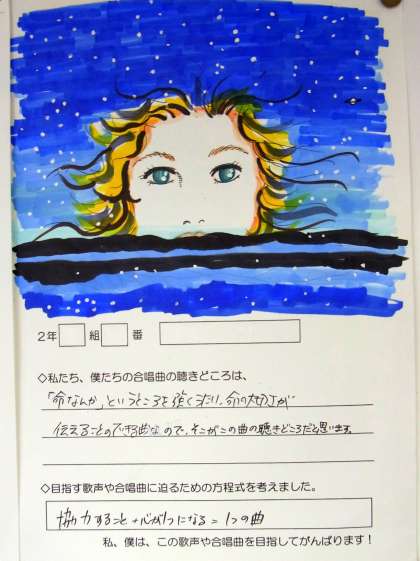 2年 組 番
◇私たち、僕たちの合唱曲の聴きどころは、
「命なんか」というところを強くうたい、命の大切さが
伝えることのできる曲なので、そこがこの曲の聴きどころだと思います。
◇目指す歌声や合唱曲に迫るための方程式を考えました。
協力すること+心が1つになる=1つの曲
私、僕は、この歌声や合唱曲を目指してがんばります!